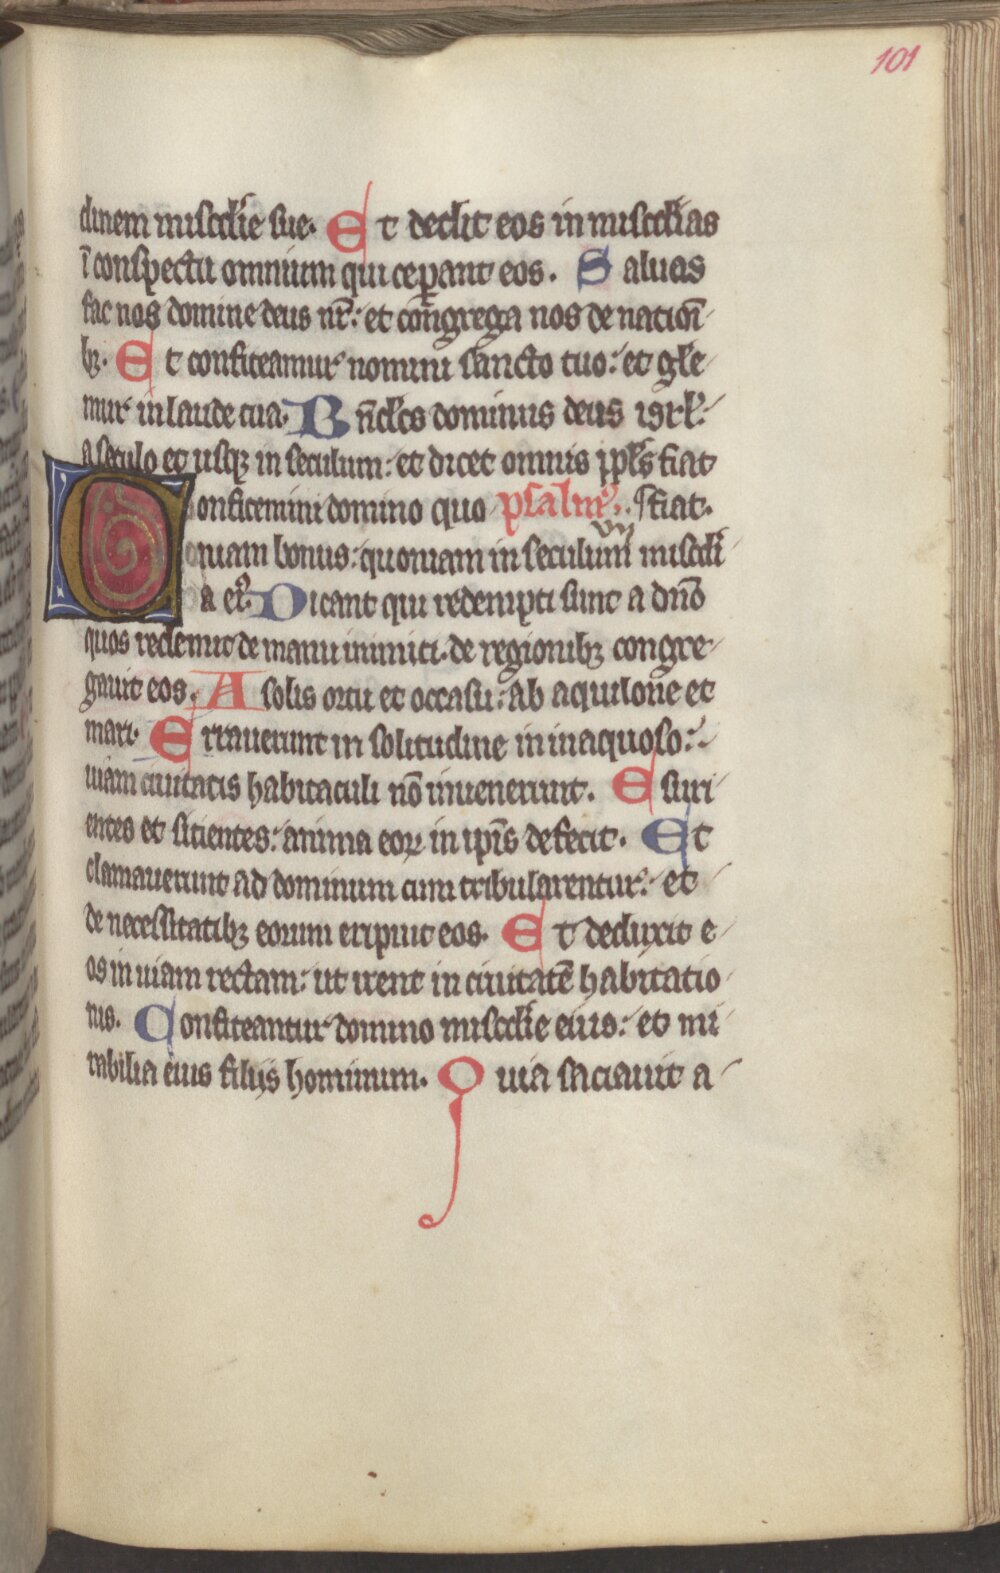 101
dinem misc̄die sue. Et dedit eos in misc̄dias
ī conspectu omnium qui ceperant eos. Saluas
fac nos domine deus nr̄: et congrega nos de nation̄
bꝫ. Et confiteamur nomini sancto tuo: et gl̄e
mur in laude tua. Bn̄dcs dominus deus isrl̄:
a seculo et usqꝫ in seculum: et dicet omnis ppl̄s fiat
Confitemini domino quo psalmꝰ. fiat.
niam bonus: quoniam in seculum misc̄di
a eiꝰ. Dicant qui redempti sunt a dn̄o
quos redemit de manu inimici. de regionibꝫ congre
gauit eos. A solis ortu et occasu: ab aquilone et
mari. Errauerunt in solitudine in inaquoso:
uiam ciuitatis habitaculi nō inuenerunt. Esuri
entes et sitientes: anima eoꝝ in ip̄is defecit. Et
clamauerunt ad dominum cum tribularentur: et
de necessitatibꝫ eorum eripuit eos. Et deduxit e
os in uiam rectam: ut irent in ciuitatē habitatio
nis. Confiteantur domino misc̄die eius: et mi
rabilia eius filijs hominum. Quia saciauit a